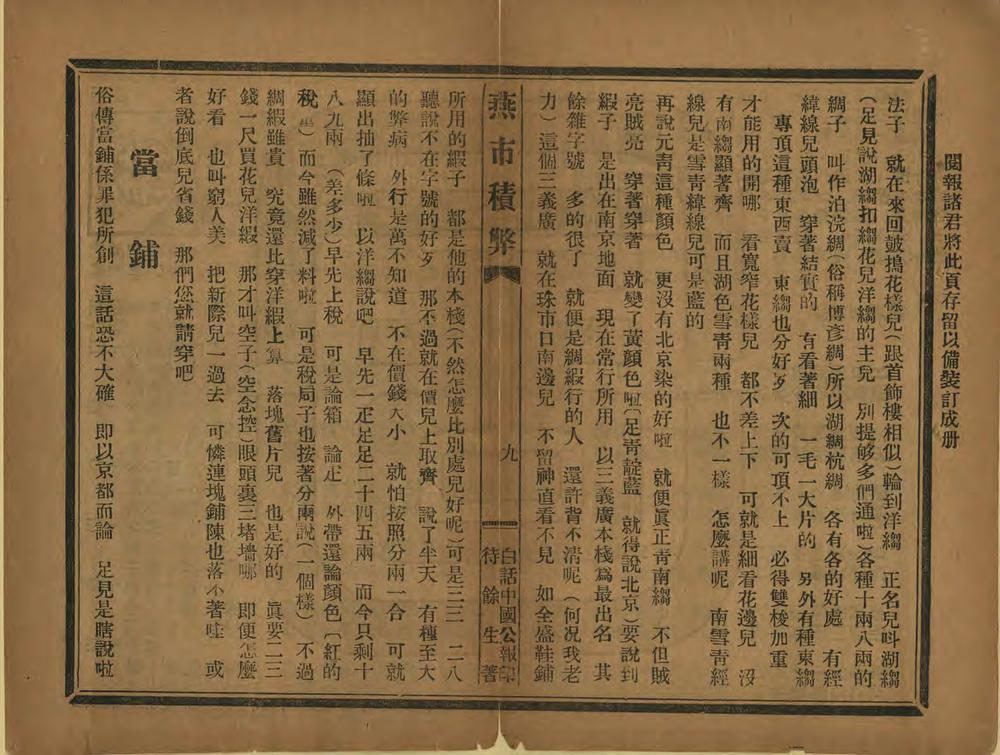 閱報諸君將此頁存留以備裝訂成册
法子　就在來回鼓搗花樣兒（跟首飾樓相似）輪到洋縐　正名兒叫湖縐
（足見說湖縐扣縐花兒洋縐的主兒　別提够多們通啦）各種十兩八兩的
綢子　叫作泊浣綢（俗稱博彥綢）所以湖綢杭綢　各有各的好處　有經
緯線兒頭泡　穿著結實的　有看著細　一毛一大片的　另外有種東縐
專頂這種東西賣　東縐也分好歹　次的可頂不上　必得雙梭加重
才能用的開哪　看寬窄花樣兒　都不差上下　可就是細看花邊兒　沒
有南縐顯著齊　而且湖色雪青兩種　也不一樣　怎麼講呢　南雪青經
線兒是雪青緯線兒可是藍的
再說元青這種顏色　更沒有北京染的好啦　就便眞正青南縐　不但賊
亮賊亮　穿著穿著　就變了黃顏色啦（足青靛藍　就得說北京）要說到
緞子　是出在南京地面　現在常行所用　以三義廣本棧爲最出名　其
餘雜字號　多的很了　就便是綢緞行的人　還許背不清呢（何况我老
力）這個三義廣　就在珠市口南邊兒　不留神直看不見　如全盛鞋鋪
燕市積弊
九
白話中國公報印
待餘生著
所用的緞子　都是他的本棧（不然怎麼比別處兒好呢）可是三三　二八
聽說不在字號的好歹　那不過就在價兒上取齊　說了半天　有種至大
的弊病　外行是萬不知道　不在價錢大小　就怕按照分兩一合　可就
顯出抽了條啦　以洋縐說吧　早先一疋足足二十四五兩　而今只剩十
八九兩　（差多少）早先上稅　可是論箱　論疋　外帶還論顏色（紅的
稅　）而今雖然減了料啦　可是稅局子也按著分兩說（一個樣）不過
綢緞雖貴　究竟還比穿洋緞上算　落塊舊片兒　也是好的　眞要二三
錢一尺買花兒洋緞　那才叫空子（空念控）眼頭裏三堵墻哪　即便怎麼
好看　也叫窮人美　把新際兒一過去　可憐連塊鋪陳也落不著哇　或
者說倒底兒省錢　那們您就請穿吧
當鋪
俗傳當鋪係罪犯所創　這話恐不大確　即以京都而論　足見是瞎說啦